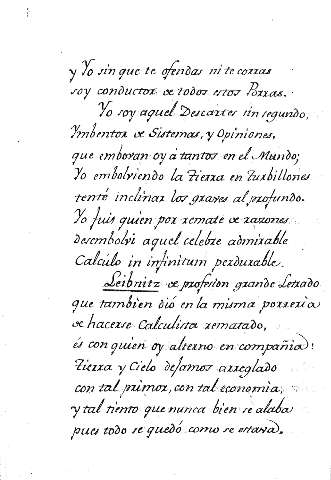 y Yo sin que te ofendas ni te corras
soy conductor de todos estos Porras.
Yo soy aquel Descartes sin segundo,
Ymbentor de Sistemas, y Opiniones,
que emboban oy á tantos en el Mundo;
Yo embolviendo la Tierra en Turbillones
tenté inclinar los graves al profundo.
Yo fuis quien por remate de razones
desembolvi aquel celebre admirable
Calculo in infinitum perdurable.
Leibnitz de profesion grande Letrado
que tambien dió en la misma porreria
de hacerse Calculista rematado,
és con quien oy alterno en compañia!
Tierra y Cielo dejamos arreglado
con tal primor, con tal economia,
y tal tiento que nunca bien se alaba
pues todo se quedó como se estava.